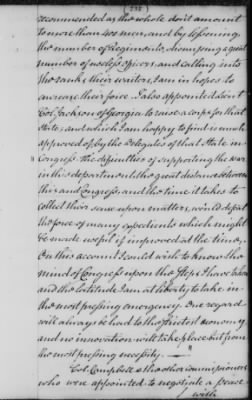 238
recommended as the whole don't amount
to more than 400 men, and by lessening
the number of Regiments, thrown going a great
number of useless officers, and calling into
the ranks their waiters, I am in hopes to
increase their force. I also appointed Lieut
Col. Jackson of Georgia to raise a corps for that
State; and which I am happy to find is much
approved of, by the Delegates of that State in
Congress. The difficulties of supporting the war
in this department, the great distance between
this and Congress, and the time it takes to
collect their sense upon matters, would defeat
the force of many expedients which might
be made useful if improved at the time;
On this account I could wish to know the
mind of Congress upon the steps I have taken
and the latitude I am at liberty to take in
the most pressing emergency. Due regard
will always be had to the strictest economy
and no innovation will take place but from
the most pressing necessity. —"
Col. Campbell & the other commissioners
who were appointed to negotiate a peace
with